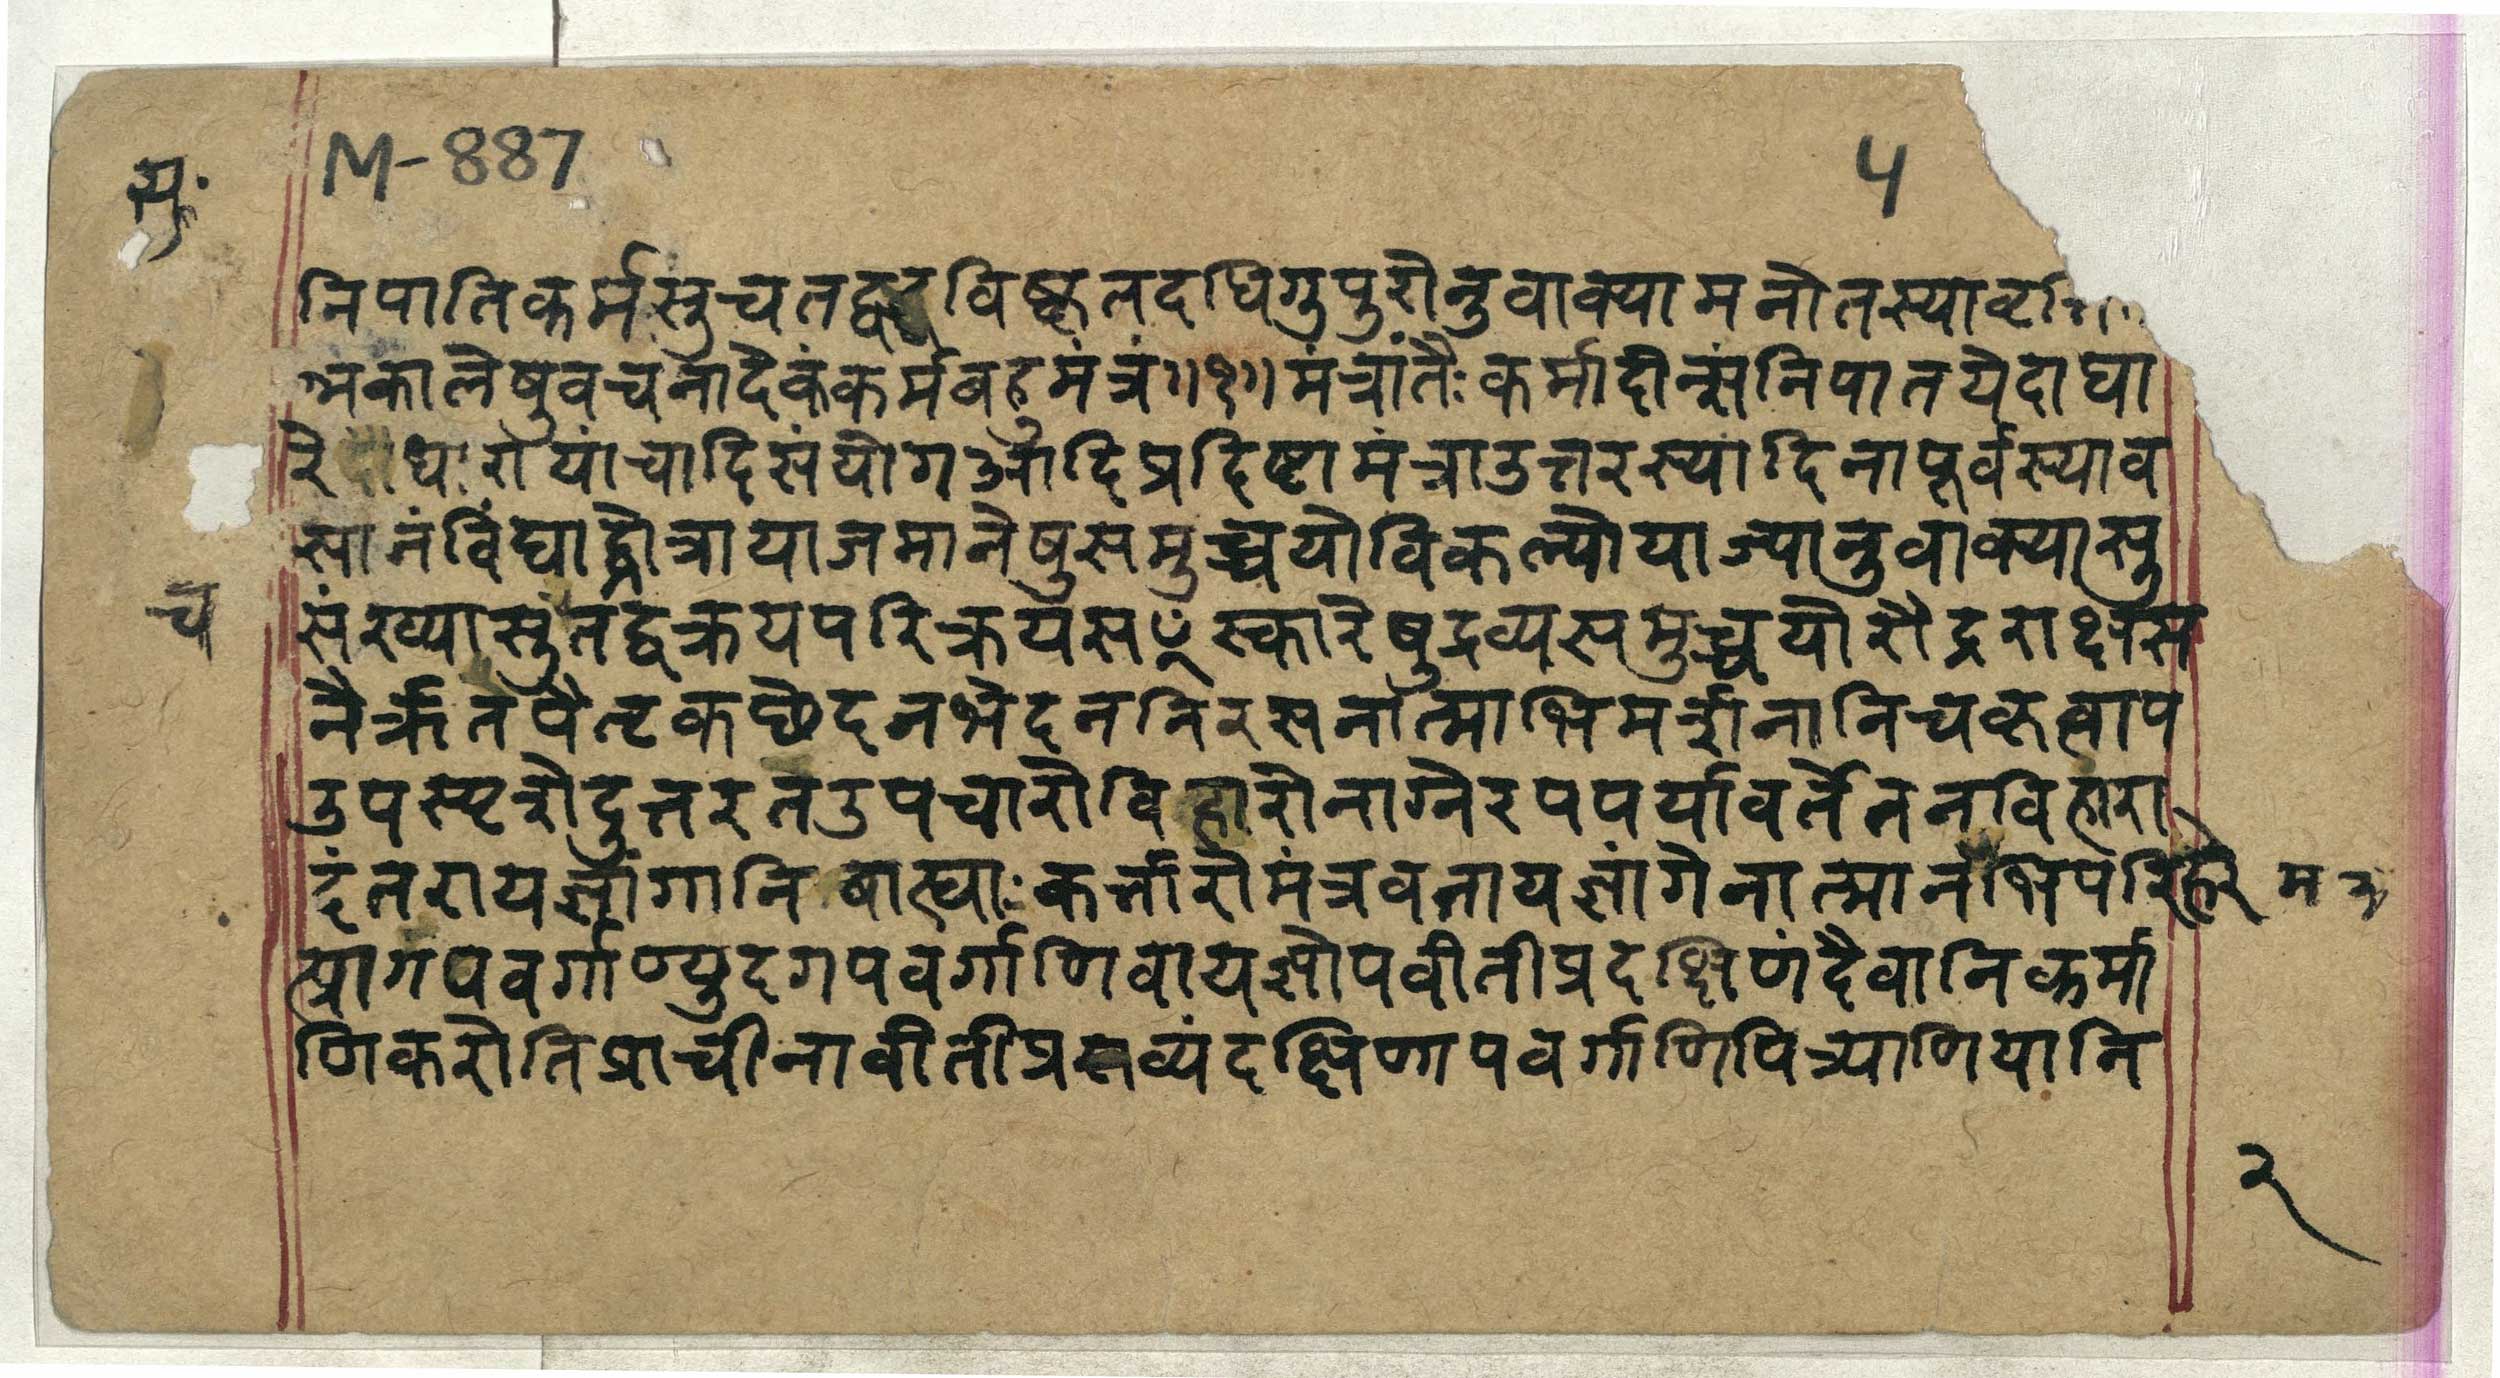 M-887
५
नु
निपातिकर्मसुचतद्वद्धविष्कृतदध्रिगुपुरोनुवाक्यामनोतस्यावृत्ति
न्नकालेषुवचनादेकंकर्मबहुमंत्रं॥१॥मंत्रांतैःकर्मादीन्संनिपातयेदाघा
रेधारायांचादिसंयोगआदिप्रदिष्टामंत्राउत्तरस्यादिनापूर्वस्याव
सानंविद्याद्धोत्रायाजमानेषुसमुच्चयोविकल्पोयाज्यानुवाक्यासु
च
संख्यासुतद्वत्क्रयपरिक्रयसꣳस्कारेषुद्रव्यसमुच्चयोरौद्रराक्षस
नैर्ऋतपैतृकछेदनभेदननिरसनात्माभिमर्शनानिचकृत्वाप
उपस्पृशेदुत्तरतउपचारोविहारोनाग्नेरपपर्यावर्तेतनविहारा
दंतरायज्ञांगानिबाह्याःकर्त्तारोमंत्रवतायज्ञांगेनात्मानंभिपरिहरे
त्प्रागपवर्गाण्युदगपवर्गाणिवायज्ञोपवीतीप्रदक्षिणंदैवानिकर्मा
णिकरोतिप्राचीनावीतीप्रसव्यंदक्षिणापवर्गाणिपित्र्याणियानि
२